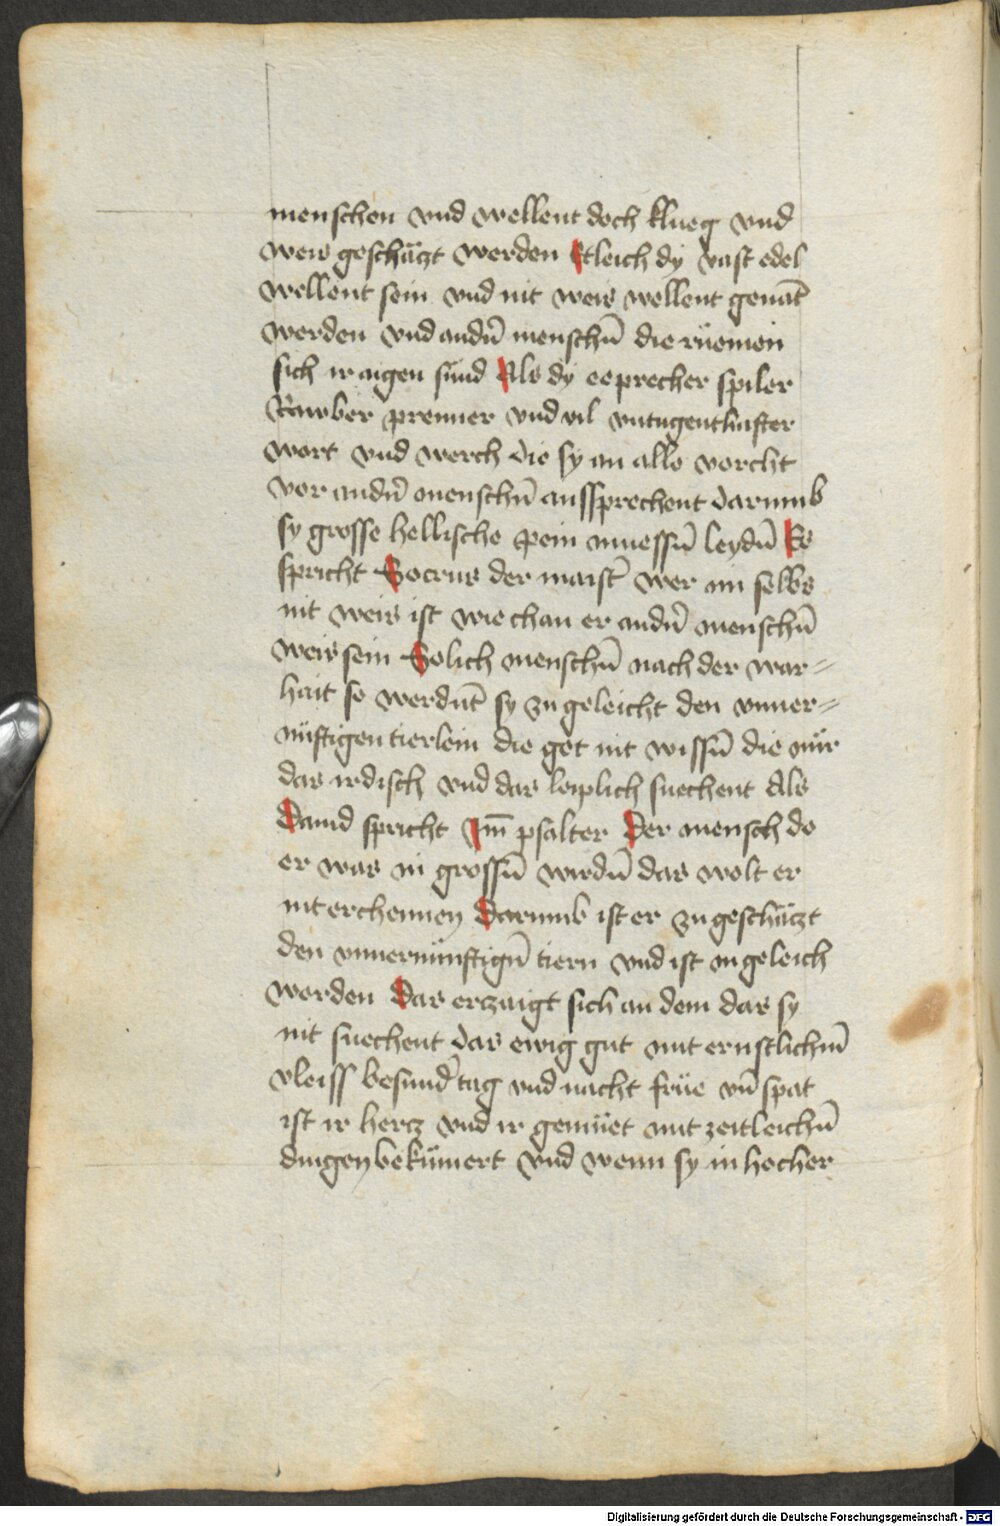 menschen vnd wellent doch klueg vnd
weis geschätzt werden Etleich dy vast edel
wellent sein vnd nit weis wellent genāt
werden vnd andn̄ menschn̄ die rüemen
sich ir aigen sünd Als dy eeprecher spiler
Rawber prenner vnd vil vntugenthafter
wort vnd werch die sy an alle vorcht
vor andn̄ menschn̄ aussprechent darumb
sy grosse hellische pein muessn̄ leydn̄ Es
spricht Socrus der maist̄ wer im selbs
nit weis ist wie chan er andn̄ menschn̄
weis sein Solich menschn̄ nach der war=
hait so werdnt̄ sy zu geleicht den vnuer=
nüftigen tierlein die got nit wissn̄ die nür
das irdisch vnd das leiplich suechent Als
Dauid spricht Im̄ psalter Der mensch do
er was in grossn̄ wirdn̄ das wolt er
nit erchennen Darumb ist er zu geschätzt
den vnuernünftign̄ tiern vnd ist in geleich
worden Das erczaigt sich an dem das sy
nit suechent das ewig gut mit ernstlichm̄
vleiss besund̄ tag vnd nacht früe vn̄ spat
ist ir hercz vnd ir gemüet mit zeitleichn̄
dingen bekümert vnd wenn sy in hocher
Digitalisierung gefördert durch die Deutsche Forschungsgemeinschaft - DFG